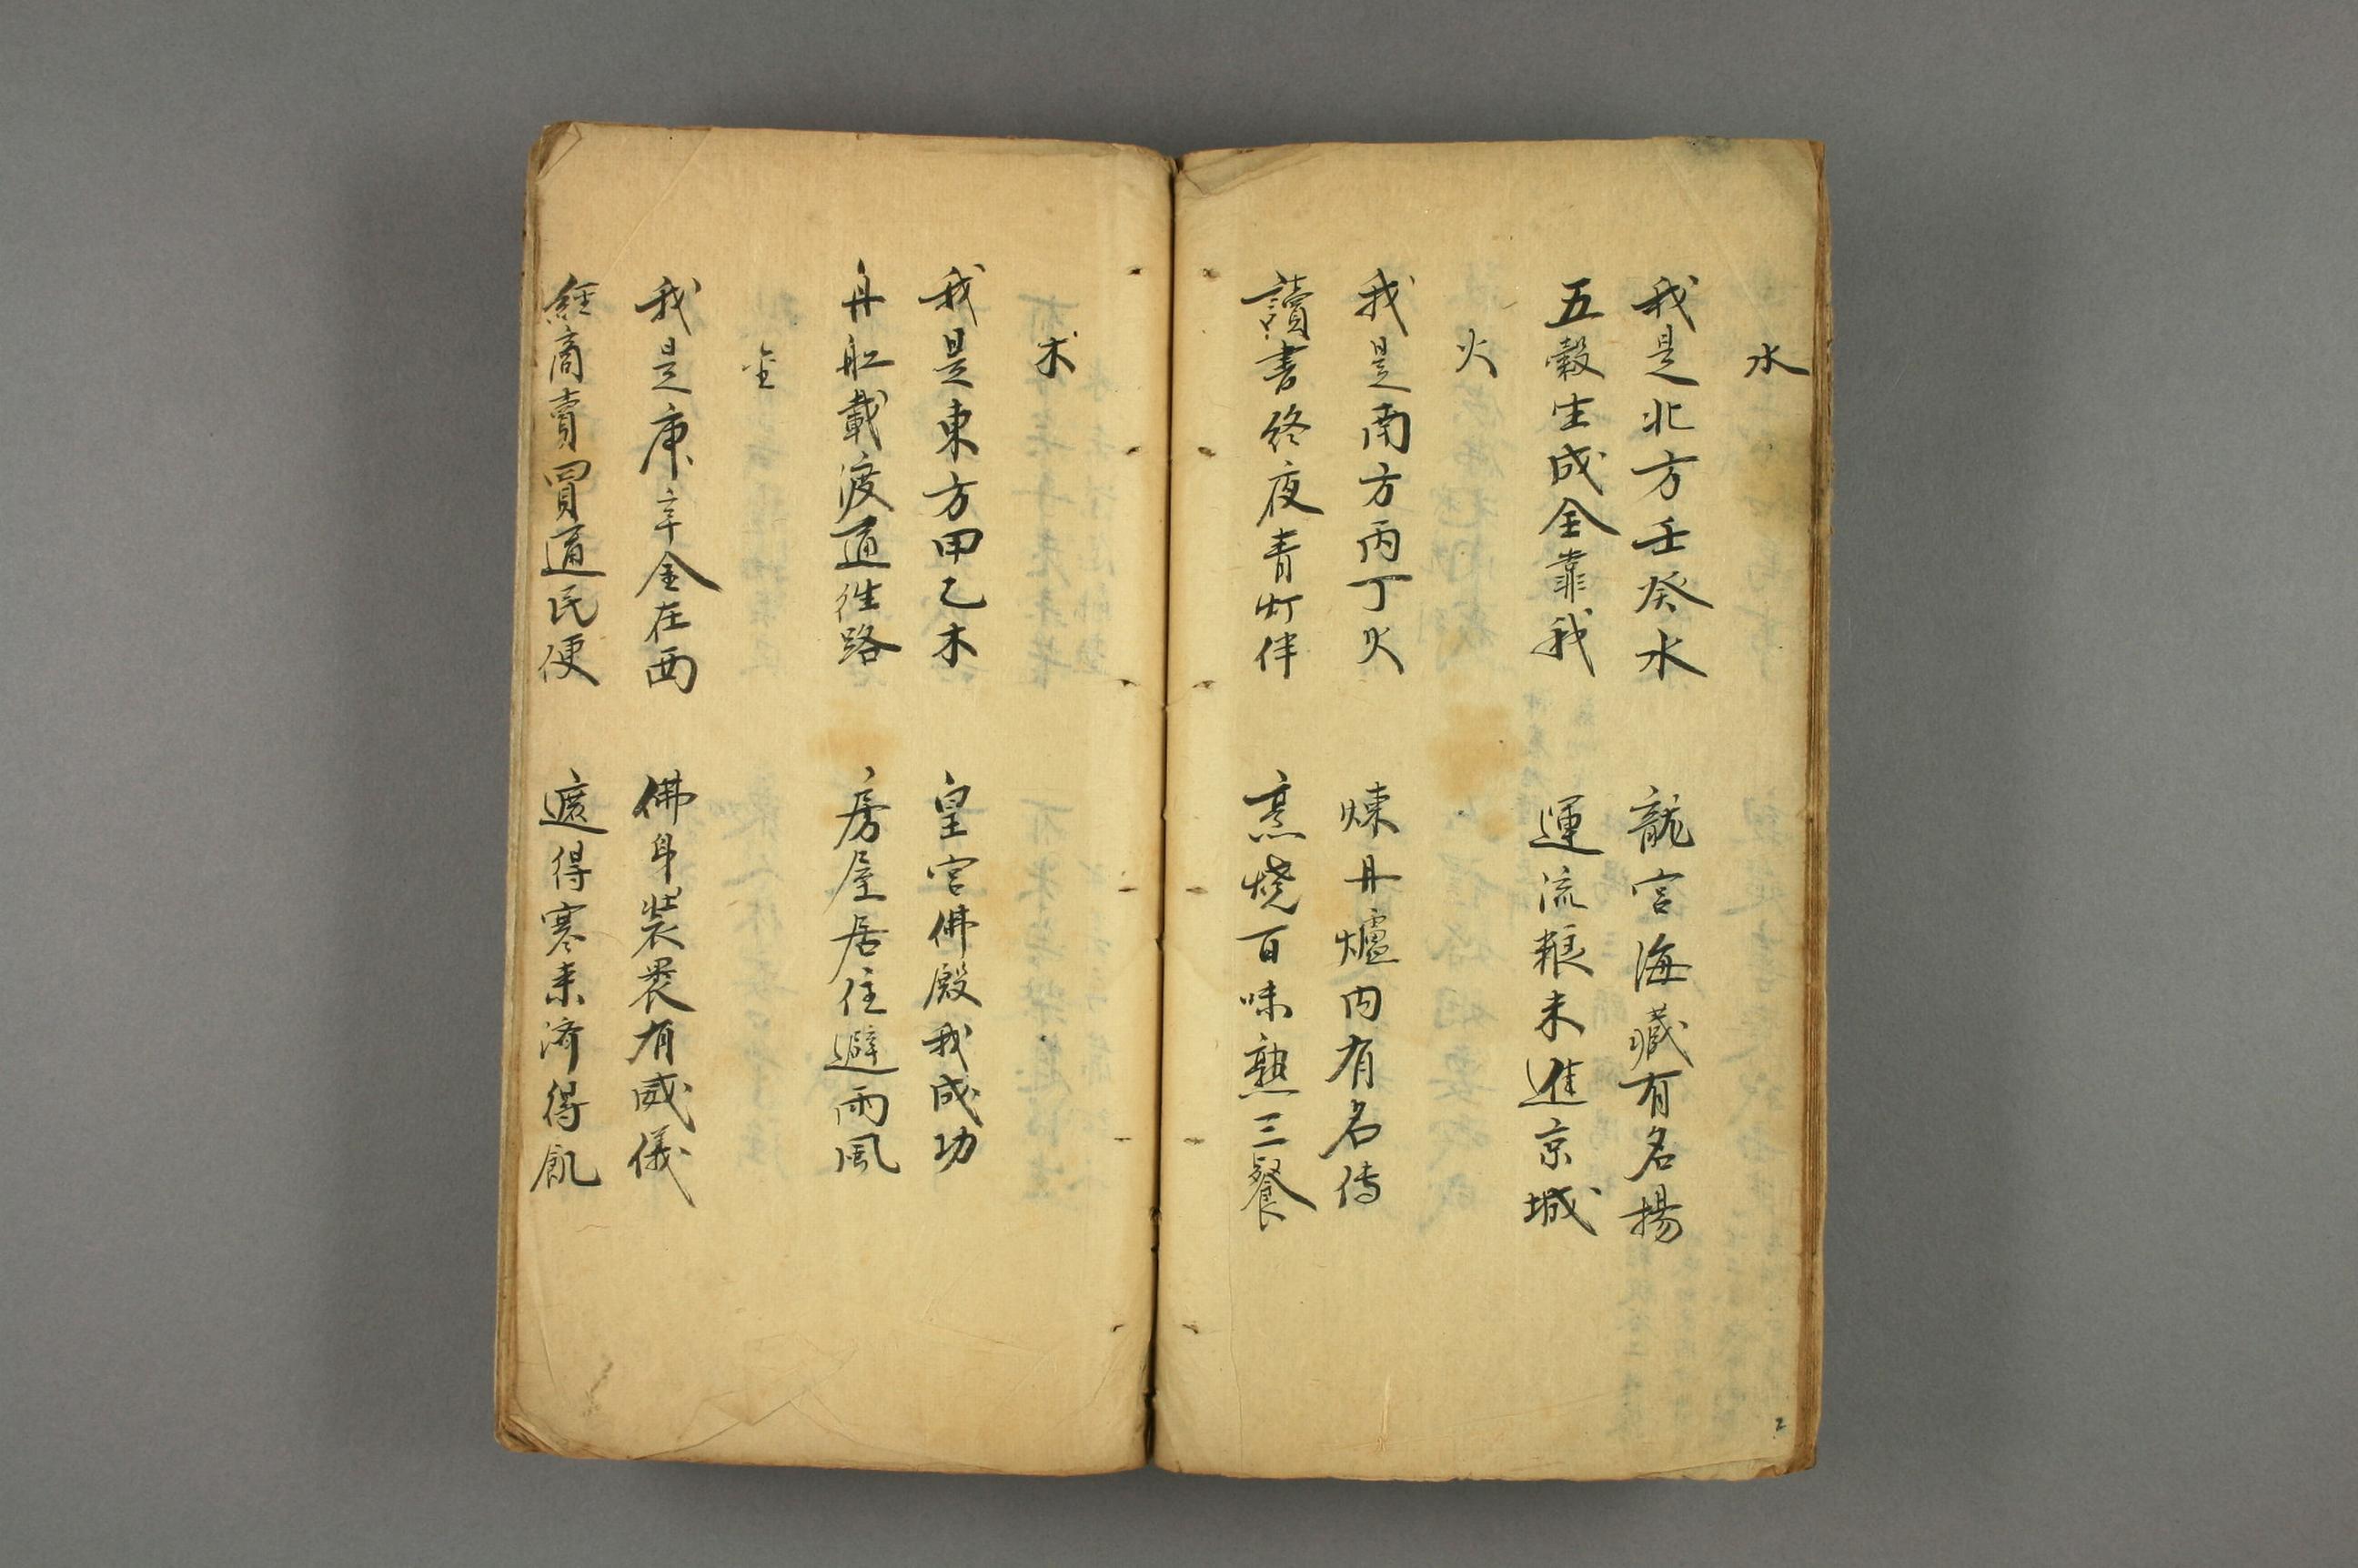 水
我是北方壬癸水 龍宮海藏有名揚
五穀生成全靠我 運流粮未進京城
火
我是南方丙丁火 煉丹爐内有名傳
讀書終夜青灯伴 烹燒百味熟三餐
木
我是東方甲乙木 皇宮佛殿我成功
舟舡載渡通徃路 房屋居住避雨風
金
我是庚辛金在西 佛身裝裹有威儀
經商賣買通民便 遮得寒来济得飢
2